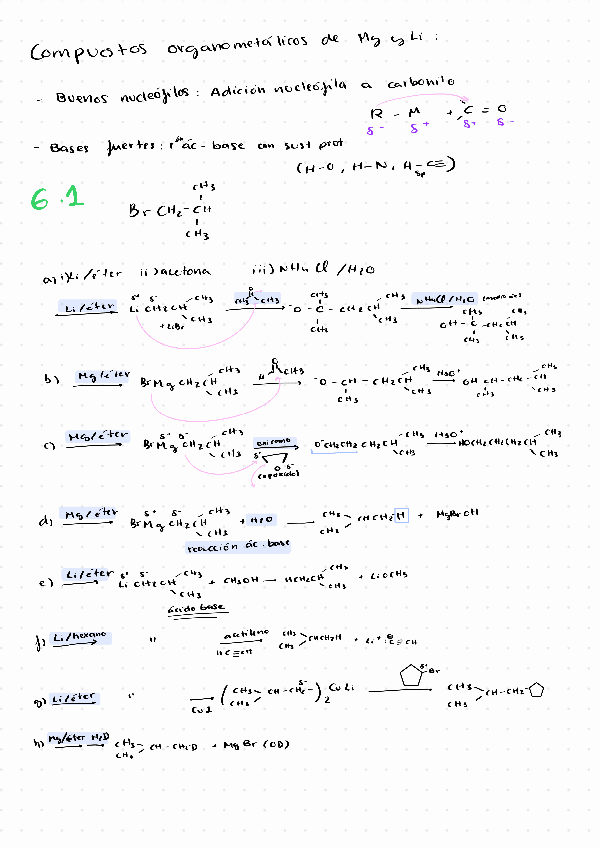 Compuestos organometálicos de Mg y Li :
- Buenos nucleófilos : Adición nucleófila a carbonilo
R - M + C = O
δ- δ+ δ+ δ-
- Bases fuertes : r ác-base con sust prot
(H-O, H-N, H-C≡)
sp
6.1
CH3
Br CH2-CH
CH3
a) i) Li/éter ii) acetona iii) NH4Cl /H2O
Li/éter Li CH2CH CH3 CH3 + LiBr CH3 CH3 -O - C - CH2CH CH3 CH3 CH3 CH3 NH4Cl/H2O OH - C - CH2CH CH3 CH3 CH3 CH3
b) Mg/éter BrMg CH2CH CH3 CH3 H CH3 -O - CH - CH2CH CH3 CH3 CH3 H3O+ OH CH - CH2 - CH CH3 CH3 CH3
c) Mg/éter BrMg CH2CH CH3 CH3 oxirano (epóxido) O-CH2CH2 CH2CH CH3 CH3 H3O+ HOCH2CH2CH2CH CH3 CH3
d) Mg/éter BrMg CH2CH CH3 CH3 + H2O CH3 CH3 CHCH2H + MgBrOH
reacción ác. base
e) Li/éter Li CH2CH CH3 CH3 + CH3OH HCH2CH CH3 CH3 + LiOCH3
ácido base
f) Li/hexano " acetileno HC≡CH CH3 CH3 CHCH2H + Li+ C≡CH
g) Li/éter " CuI ( CH3 CH3 CH-CH2 )2 CuLi Br CH3 CH3 CH-CH2
h) Mg/éter H2D CH3 CH3 CH-CH2D + MgBr(OD)